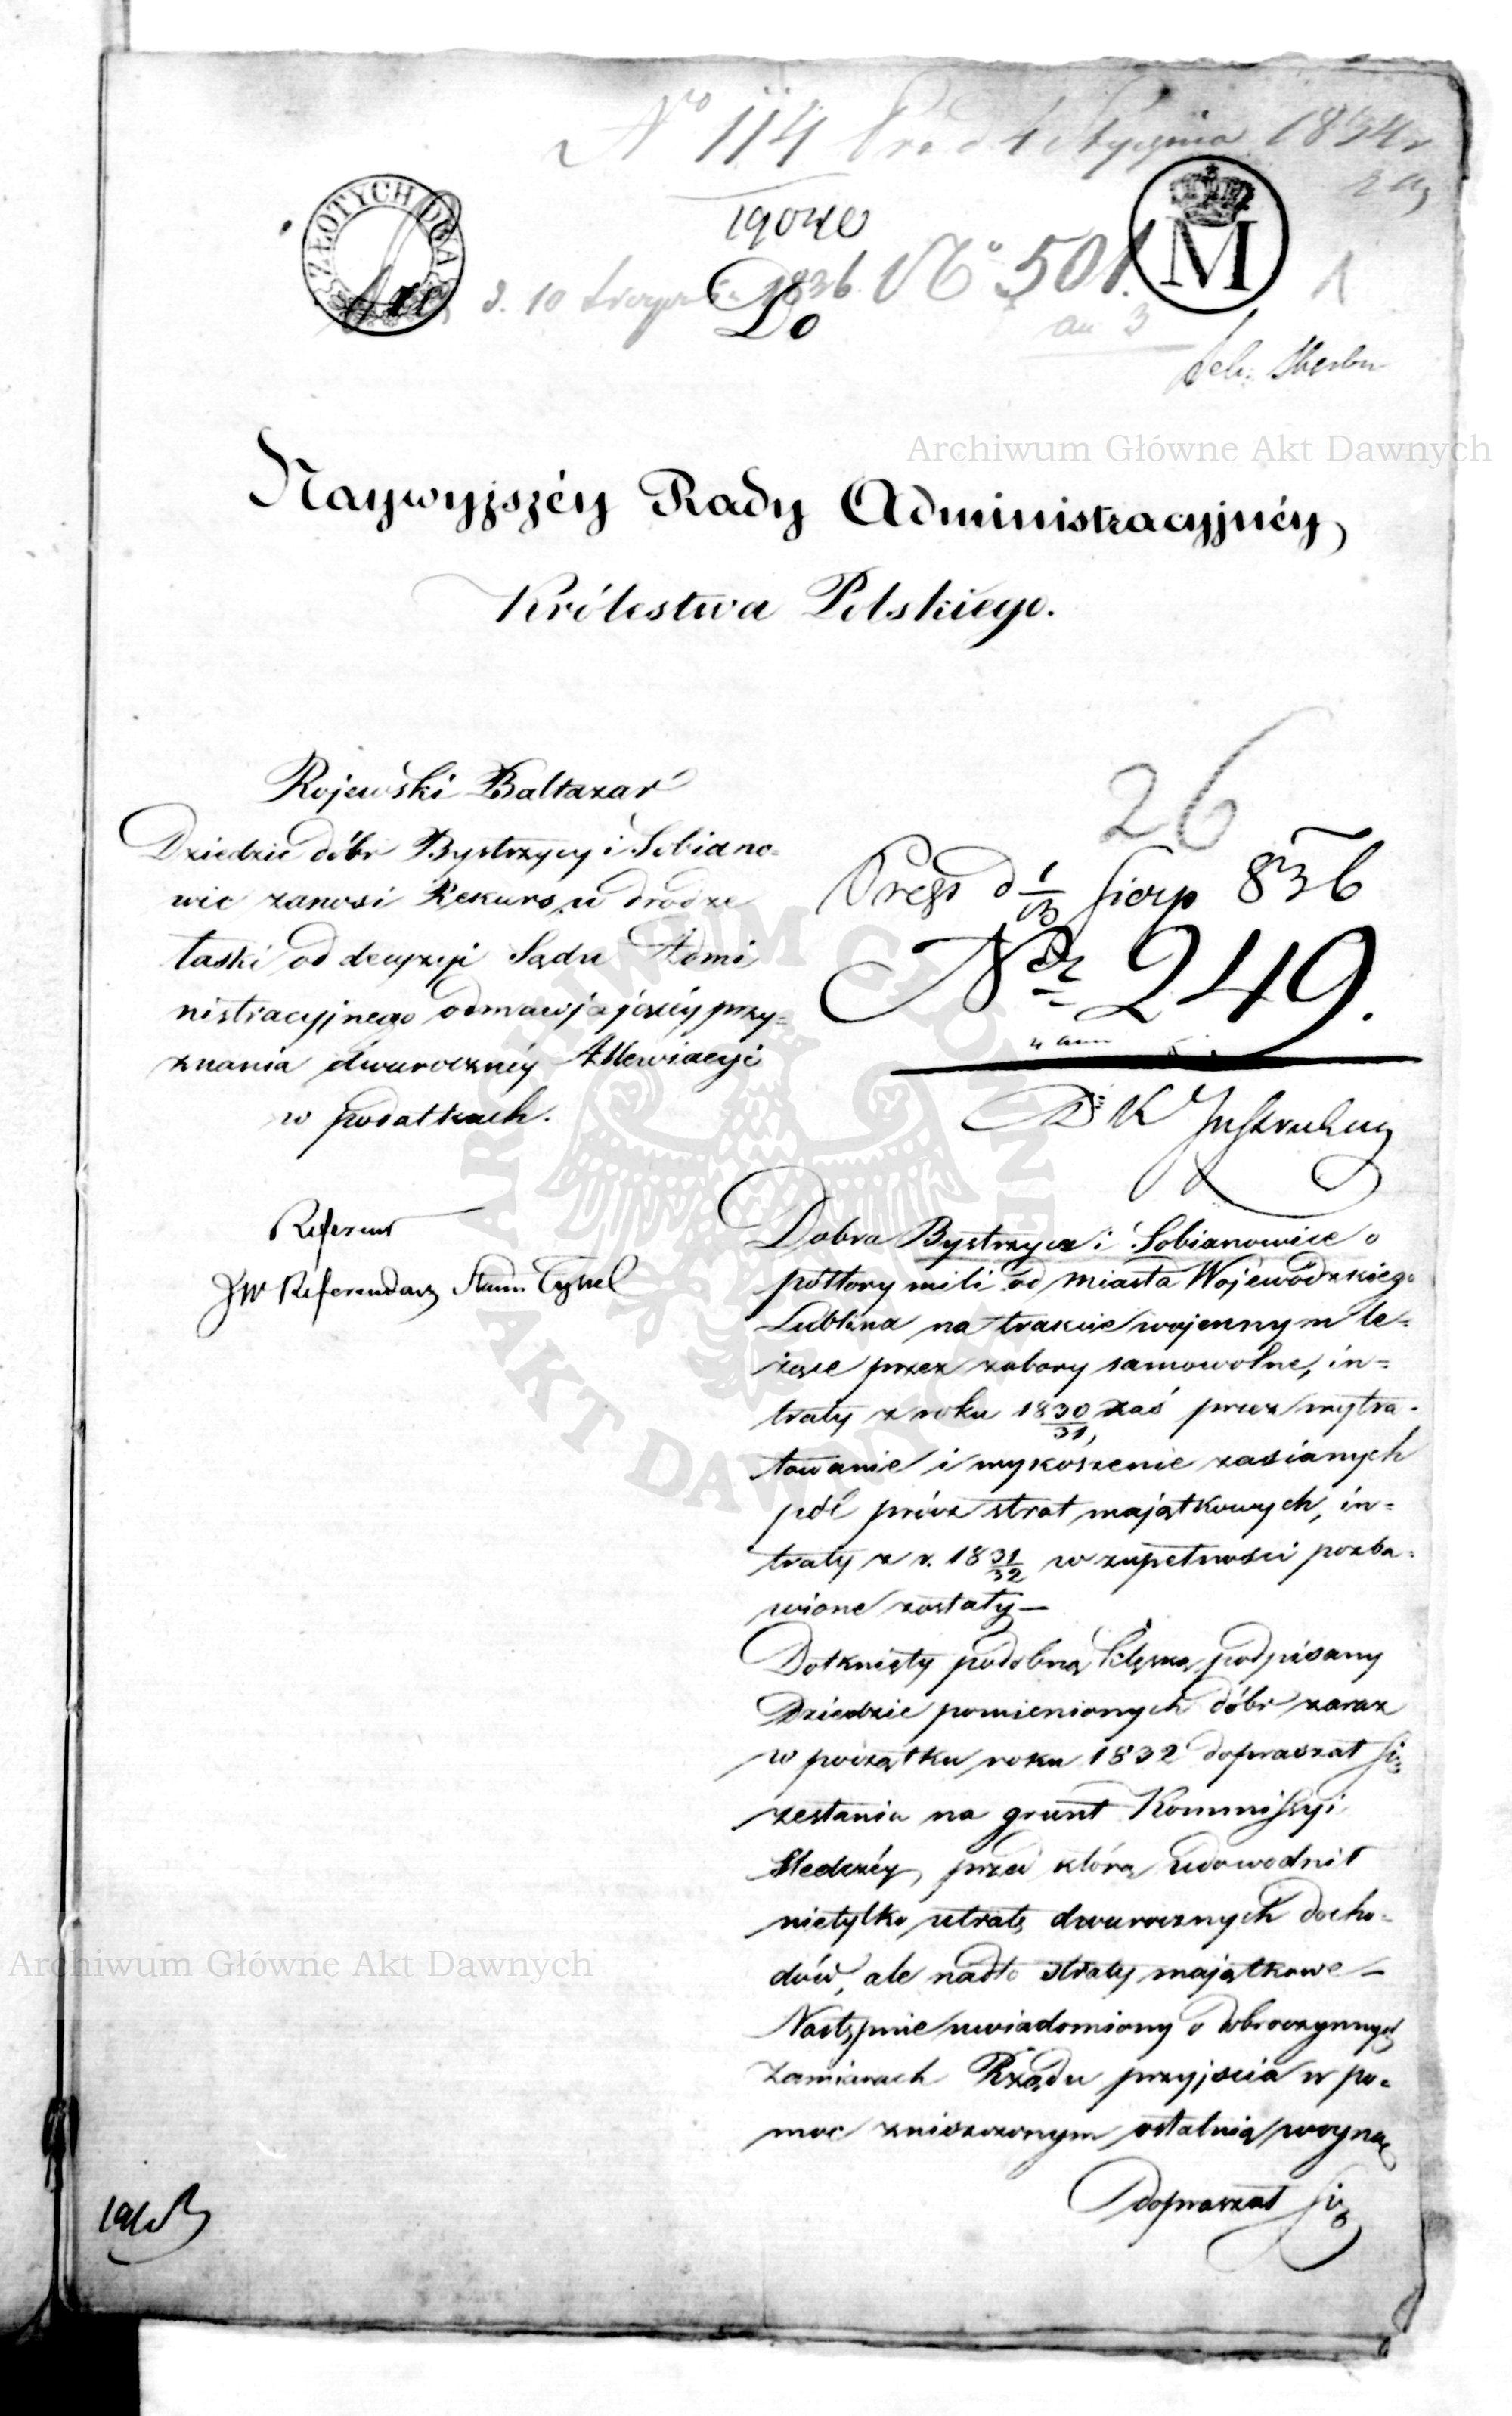 Nº 114 Pred 4 Stycznia 1834 r
19040
ZŁOTYCH DWA
M
d. 10 1836 Nº 501.
1
Do
Naywyższéy Rady Administracyjnéy,
Królestwa Polskiego.
26
Rojewski Baltazar
Dziedzic dóbr Bystrzycy i Sobiano=
wic zanosi Rekurs w drodze
łaski od decyzyi Sądu Admi
nistracyjnego odmawiającéy przy=
znania dwurocznéy Allewiacyi
w podatkach.
Prez d 1/13 Sierp 836
Nr 249.
Referent
JW Referendarz
Dobra Bystrzyca i Sobianowice o
półtory mili od miasta Wojewódzkiego
Lublina na trakcie wojennym le=
żące przez zabory samowolne, in=
traty z roku 1830/31, zaś przez wytra=
towanie i wykoszenie zasianych
pól prócz strat majątkowych, in=
traty z r. 1831/32 w zupełności pozba=
wione zostały —
Dotknięty podobną klęską podpisany
Dziedzic pomienionych dóbr zaraz
w początku roku 1832 dopraszał się
zesłania na grunt Kommissyi
Śledczéy, przed którą udowodnił
nietylko utratę dwurocznych docho=
dów, ale nadto straty majątkowe —
Następnie uwiadomiony o dobroczynnych
Zamiarach Rządu przyjścia w po=
moc zniszczonym ostatnią woyną
dopraszał się
Archiwum Główne Akt Dawnych
Archiwum Główne Akt Dawnych
ARCHIWUM GŁÓWNE
AKT DAWNYCH